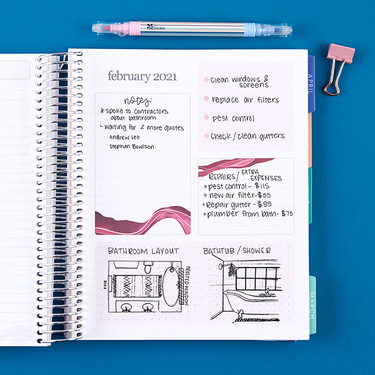 february 2021
notes:
* spoke to contractors
about bathroom
↳ waiting for 2 more quotes
andrew Lee
Stephan Boulsen
clean windows &
screens
replace air filters
pest control
check/clean gutters
REPAIRS/ EXTRA
EXPENSES
• pest control - $115
• new air filter - $55
• Repair gutter - $85
• plumber from bath - $75
BATHROOM LAYOUT
BATHTUB / SHOWER
APRIL